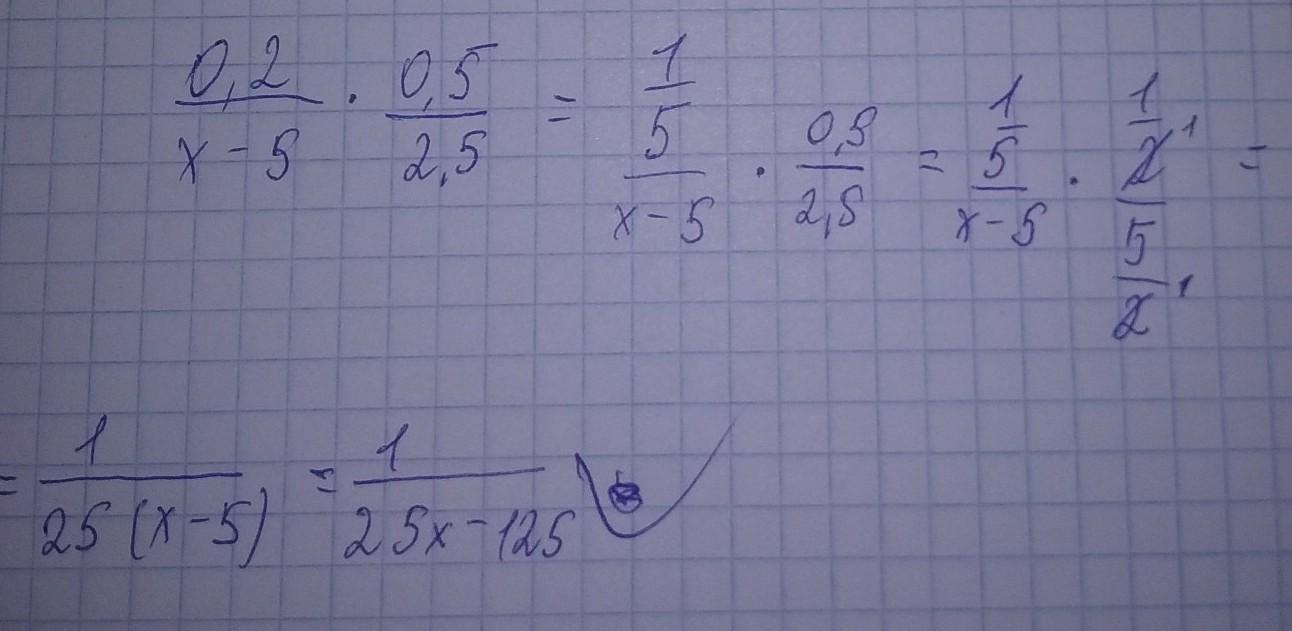 \frac{0,2}{x-5} \cdot \frac{0,5}{2,5} = \frac{\frac{1}{5}}{x-5} \cdot \frac{0,5}{2,5} = \frac{\frac{1}{5}}{x-5} \cdot \frac{\frac{1}{\cancel{2}^1}}{\frac{5}{\cancel{2}^1}} =
= \frac{1}{25(x-5)} = \frac{1}{25x-125}